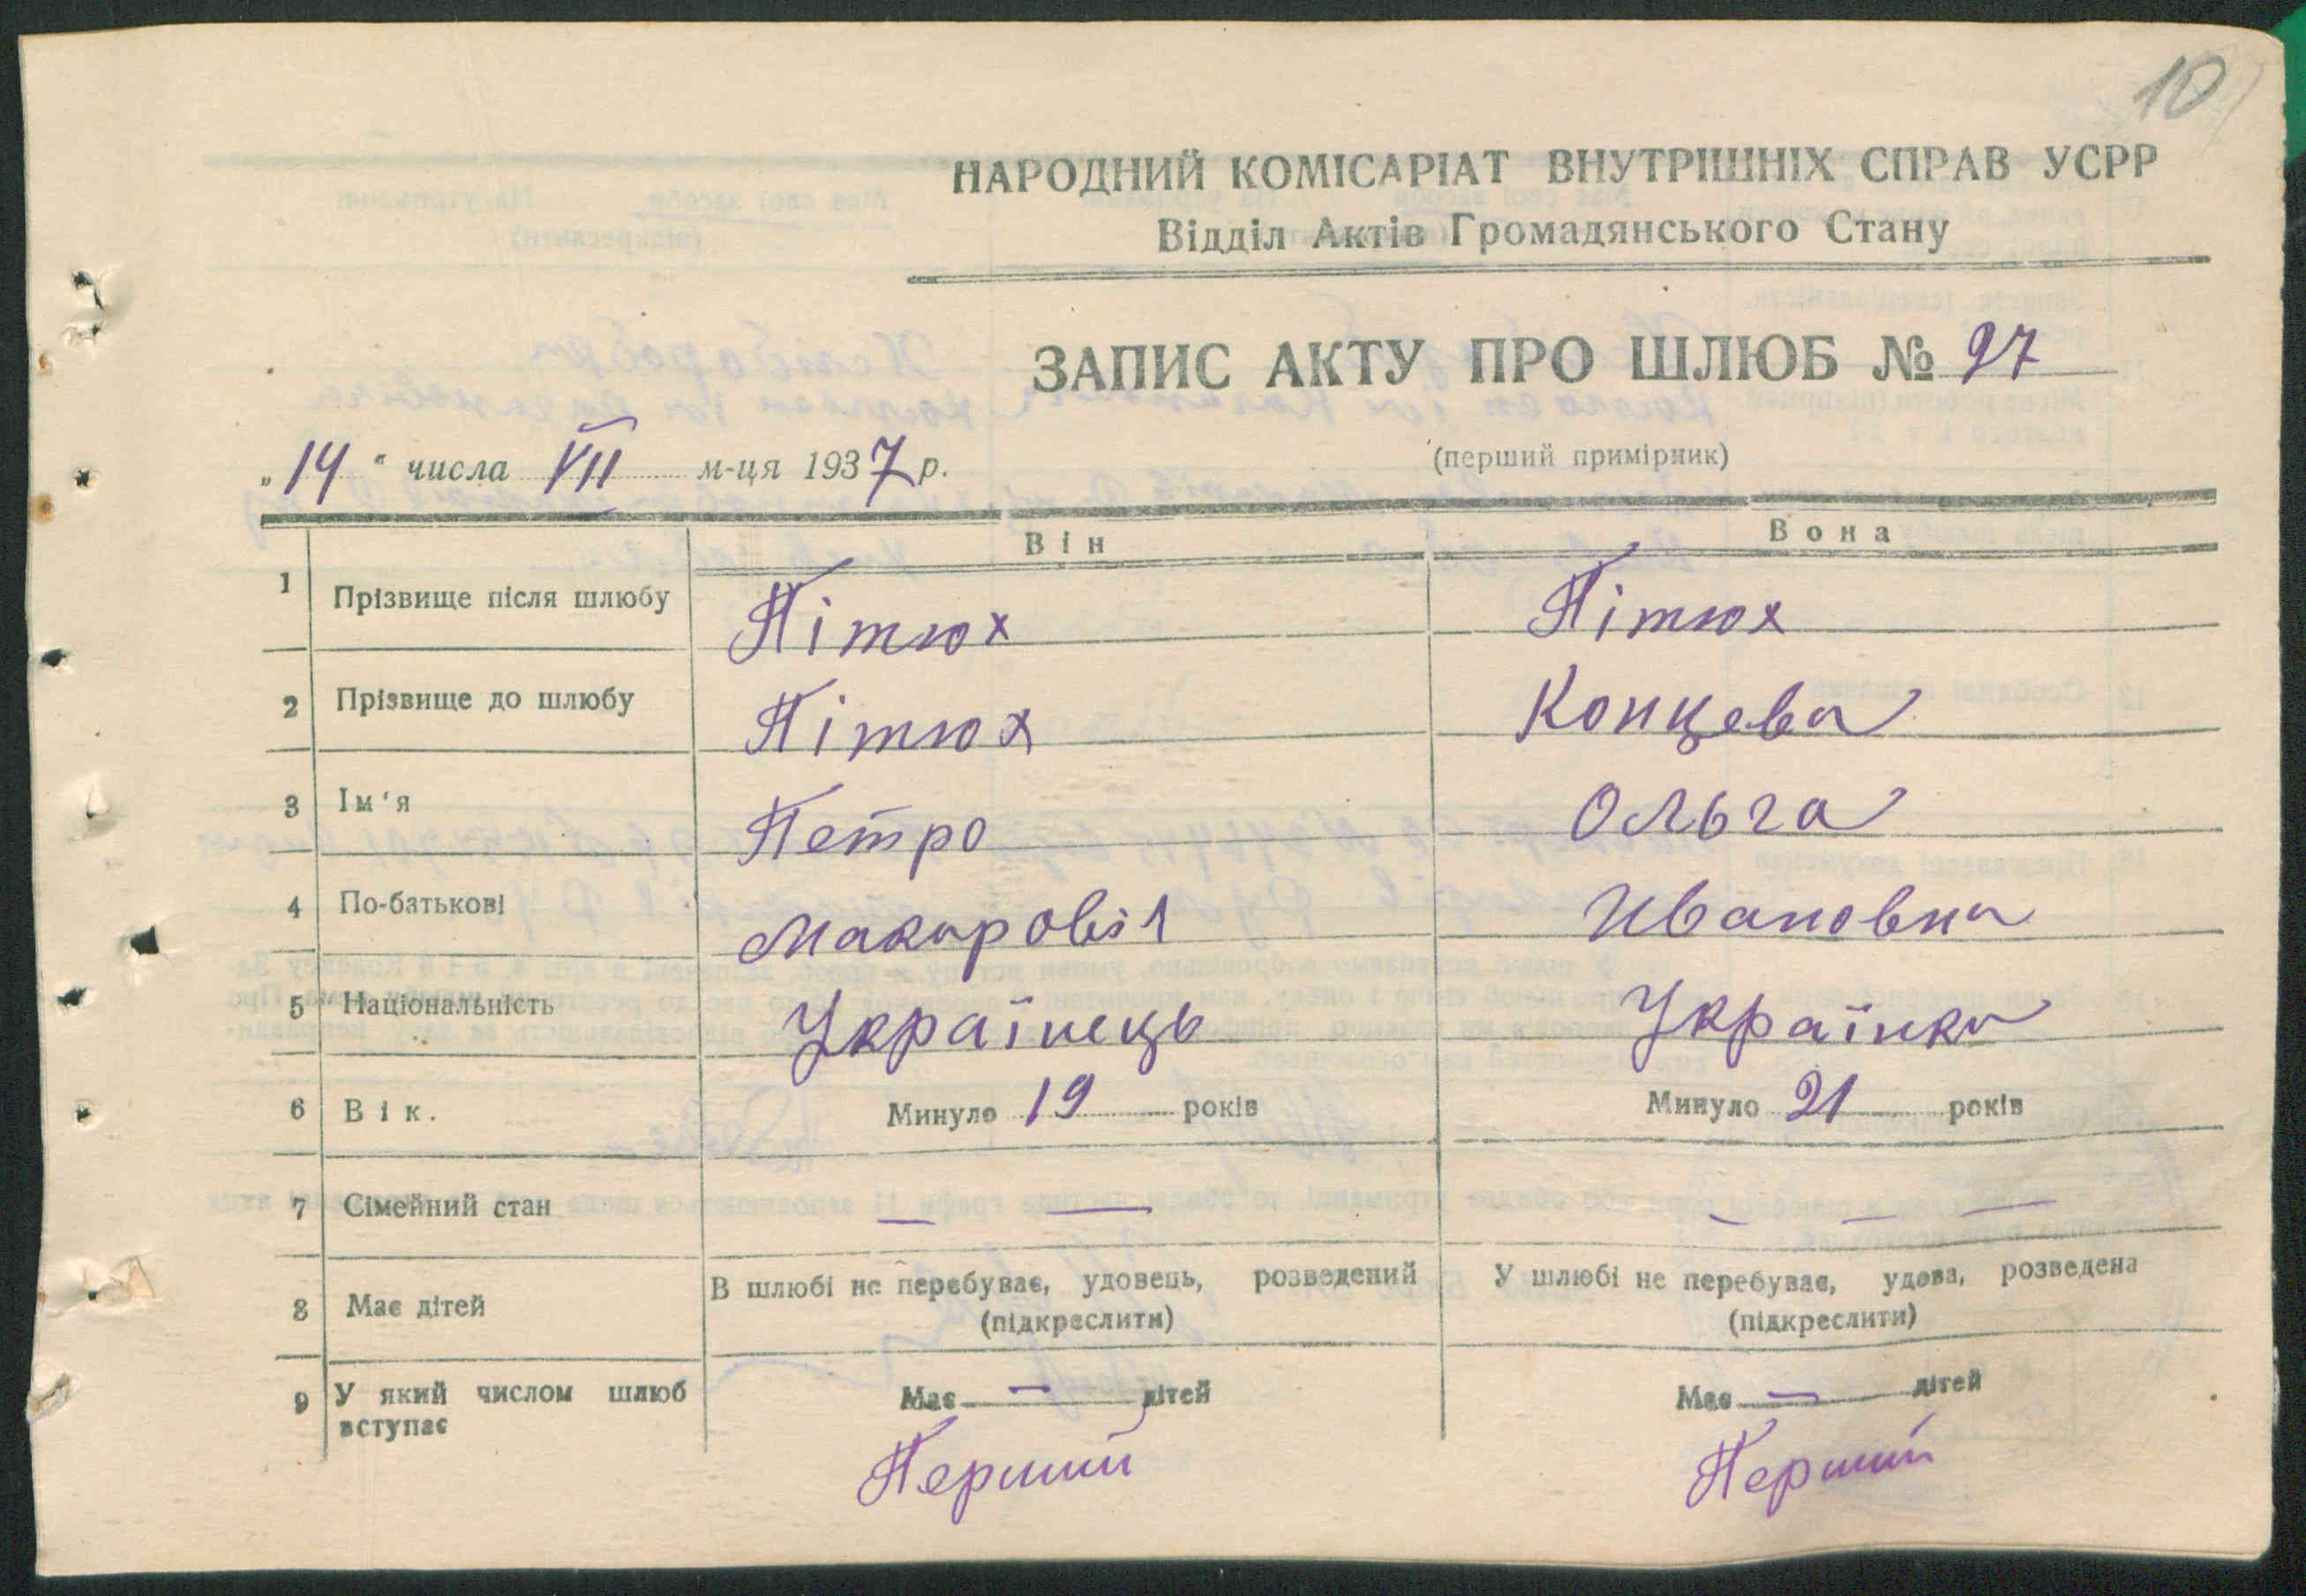 10
НАРОДНИЙ КОМІСАРІАТ ВНУТРІШНІХ СПРАВ УСРР
Відділ Актів Громадянського Стану
ЗАПИС АКТУ ПРО ШЛЮБ № 97
„14“ числа VII м-ця 1937 р.
(перший примірник)
Він Вона
1 Прізвище після шлюбу Пітюх Пітюх
2 Прізвище до шлюбу Пітюх Концева
3 Ім'я Петро Ольга
4 По-батькові Макарович Ивановна
5 Національність Українець Українка
6 Вік. Минуло 19 років Минуло 21 років
7 Сімейний стан — — — — —
8 Має дітей В шлюбі не перебуває, удовець, розведений У шлюбі не перебуває, удова, розведена
(підкреслити) (підкреслити)
9 У який числом шлюб Має — дітей Має — дітей
вступає
Перший Перший